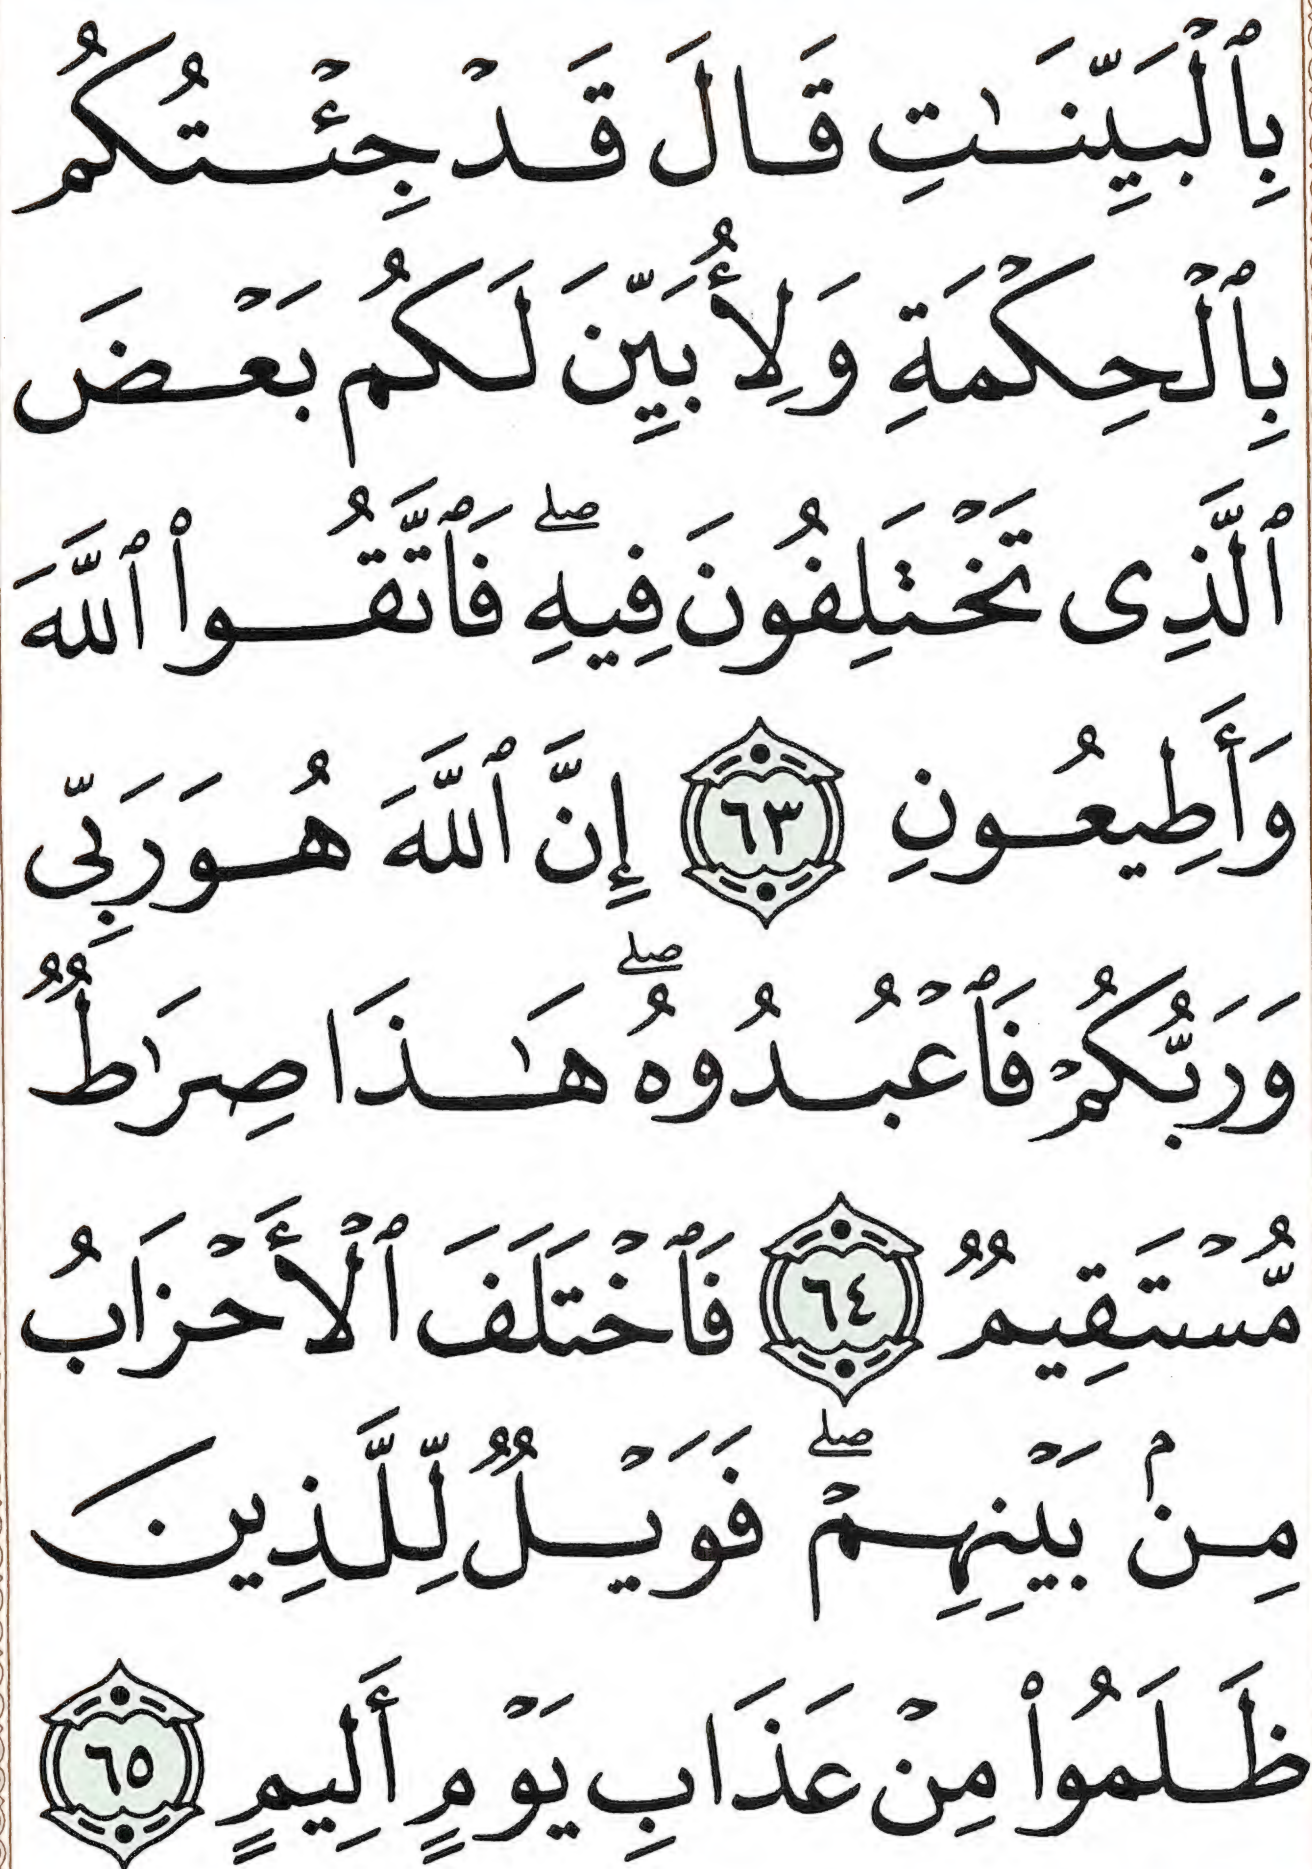 بِٱلْبَيِّنَٰتِ قَالَ قَدْ جِئْتُكُم
بِٱلْحِكْمَةِ وَلِأُبَيِّنَ لَكُم بَعْضَ
ٱلَّذِى تَخْتَلِفُونَ فِيهِ ۖ فَٱتَّقُوا۟ ٱللَّهَ
وَأَطِيعُونِ ٦٣ إِنَّ ٱللَّهَ هُوَ رَبِّى
وَرَبُّكُمْ فَٱعْبُدُوهُ ۖ هَٰذَا صِرَٰطٌ
مُّسْتَقِيمٌ ٦٤ فَٱخْتَلَفَ ٱلْأَحْزَابُ
مِنۢ بَيْنِهِمْ ۖ فَوَيْلٌ لِّلَّذِينَ
ظَلَمُوا۟ مِنْ عَذَابِ يَوْمٍ أَلِيمٍ ٦٥